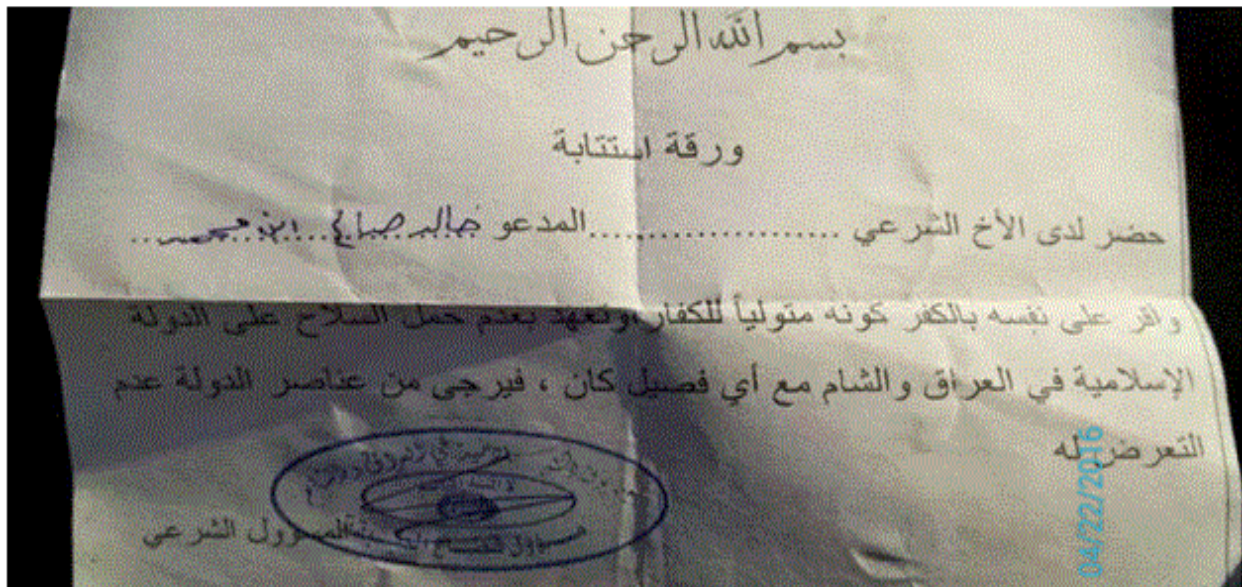 بسم الله الرحمن الرحيم
ورقة استتابة
حضر لدى الأخ الشرعي ....................المدعو خالد صالح
واقر على نفسه بالكفر كونه متولياً للكفار وتعهد بعدم حمل السلاح على الدولة
الإسلامية في العراق والشام مع أي فصيل كان ، فيرجى من عناصر الدولة عدم
التعرض له
المسؤول الشرعي
04/22/2016